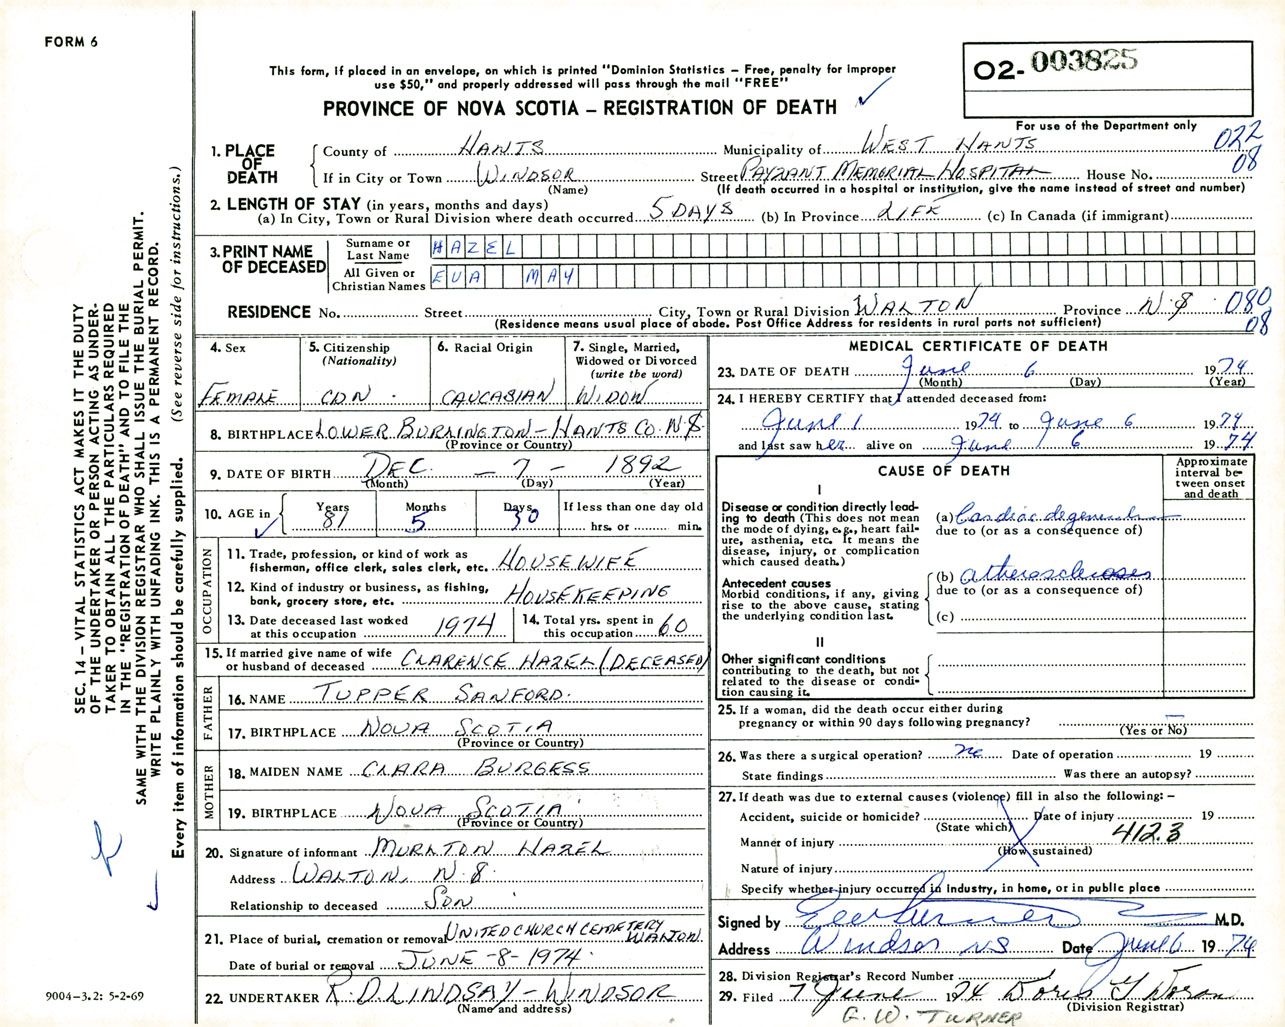 FORM 6
02-003825
This form, if placed in an envelope, on which is printed "Dominion Statistics – Free, penalty for improper
use $50," and properly addressed will pass through the mail "FREE"
PROVINCE OF NOVA SCOTIA – REGISTRATION OF DEATH
For use of the Department only
022
08
1. PLACE OF DEATH
County of HANTS Municipality of WEST HANTS
If in City or Town WINDSOR Street PAYZANT MEMORIAL HOSPITAL House No.
(Name) (If death occurred in a hospital or institution, give the name instead of street and number)
2. LENGTH OF STAY (in years, months and days)
(a) In City, Town or Rural Division where death occurred 5 DAYS (b) In Province LIFE (c) In Canada (if immigrant)
3. PRINT NAME OF DECEASED
Surname or Last Name HAZEL
All Given or Christian Names EVA MAY
RESIDENCE No. Street City, Town or Rural Division WALTON Province N.S. 080
08
(Residence means usual place of abode. Post Office Address for residents in rural parts not sufficient)
4. Sex FEMALE
5. Citizenship (Nationality) CDN.
6. Racial Origin CAUCASIAN
7. Single, Married, Widowed or Divorced (write the word) WIDOW
8. BIRTHPLACE LOWER BURLINGTON – HANTS CO. N.S.
(Province or Country)
9. DATE OF BIRTH DEC. – 7 – 1892
(Month) (Day) (Year)
10. AGE in Years 81 Months 5 Days 30 If less than one day old
hrs. or min.
OCCUPATION
11. Trade, profession, or kind of work as
fisherman, office clerk, sales clerk, etc. HOUSEWIFE
12. Kind of industry or business, as fishing,
bank, grocery store, etc. HOUSEKEEPING
13. Date deceased last worked
at this occupation 1974
14. Total yrs. spent in
this occupation 60
15. If married give name of wife
or husband of deceased CLARENCE HAZEL (DECEASED)
FATHER
16. NAME TUPPER SANFORD.
17. BIRTHPLACE NOVA SCOTIA
(Province or Country)
MOTHER
18. MAIDEN NAME CLARA BURGESS
19. BIRTHPLACE NOVA SCOTIA
(Province or Country)
20. Signature of informant MURLTON HAZEL
Address WALTON, N.S.
Relationship to deceased SON
21. Place of burial, cremation or removal UNITED CHURCH CEMETERY
WALTON.
Date of burial or removal JUNE -8- 1974.
22. UNDERTAKER R.D. LINDSAY – WINDSOR
(Name and address)
MEDICAL CERTIFICATE OF DEATH
23. DATE OF DEATH June 6 1974
(Month) (Day) (Year)
24. I HEREBY CERTIFY that I attended deceased from:
June 1 1974 to June 6 1974
and last saw her alive on June 6 1974
CAUSE OF DEATH
Approximate interval between onset and death
I
Disease or condition directly leading
to death (This does not mean
the mode of dying, e.g., heart failure,
asthenia, etc. It means the
disease, injury, or complication
which caused death.)
(a) Cardiac degeneration
due to (or as a consequence of)
Antecedent causes
Morbid conditions, if any, giving
rise to the above cause, stating
the underlying condition last.
(b) atherosclerosis
due to (or as a consequence of)
(c)
II
Other significant conditions
contributing to the death, but not
related to the disease or condition
causing it.
25. If a woman, did the death occur either during
pregnancy or within 90 days following pregnancy? –
(Yes or No)
26. Was there a surgical operation? no Date of operation 19
State findings Was there an autopsy?
27. If death was due to external causes (violence) fill in also the following: –
Accident, suicide or homicide? Date of injury 19
(State which) 412.3
Manner of injury
(How sustained)
Nature of injury
Specify whether injury occurred in Industry, in home, or in public place
Signed by M.D.
Address Windsor N.S Date June 6 1974
28. Division Registrar's Record Number
29. Filed 7 June 1974 Doris Y Doran
(Division Registrar)
G. W. TURNER
SEC. 14 – VITAL STATISTICS ACT MAKES IT THE DUTY
OF THE UNDERTAKER OR PERSON ACTING AS UNDERTAKER
TO OBTAIN ALL THE PARTICULARS REQUIRED
IN THE "REGISTRATION OF DEATH" AND TO FILE THE
SAME WITH THE DIVISION REGISTRAR WHO SHALL ISSUE THE BURIAL PERMIT.
WRITE PLAINLY WITH UNFADING INK. THIS IS A PERMANENT RECORD.
Every item of information should be carefully supplied. (See reverse side for instructions.)
9004-3.2: 5-2-69